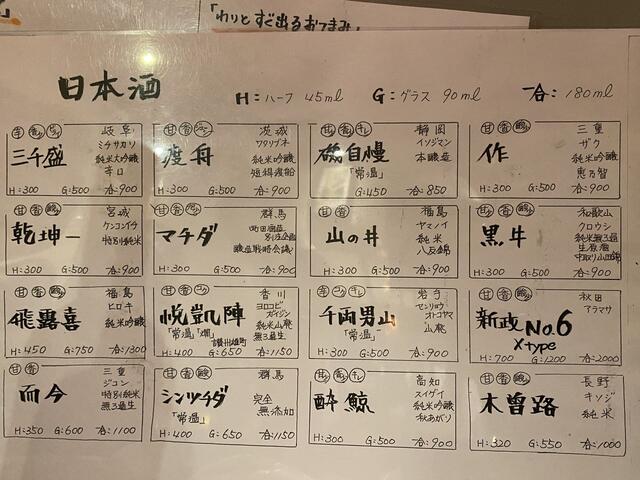 「わりとすぐ出るおつまみ」
日本酒
H:ハーフ 45ml G:グラス 90ml 一合:180ml
辛 香
岐阜
三千盛
ミチサカリ
純米大吟醸
辛口
H:300 G:500 合:900
甘 香
茨城
渡舟
ワタリブネ
純米吟醸
短稈渡船
H:300 G:500 合:900
甘 香 キレ
静岡
磯自慢
イソジマン
本醸造
「常温」
G:450 合:850
甘 香 酸
三重
作
ザク
純米吟醸
恵乃智
H:300 G:500 合:900
甘 香 酸
宮城
乾坤一
ケンコンイチ
特別純米
H:300 G:500 合:900
群馬
マチダ
町田酒造
別注企画
醸造戦略会議
H:300 G:500 合:900
甘 香
福島
山の井
ヤマノイ
純米
八反錦
H:300 G:500 合:900
甘 香 酸
和歌山
黒牛
クロウシ
純米無ろ過
生原酒
中取り山田錦
H:300 G:500 合:900
甘 香 酸
福島
飛露喜
ヒロキ
純米吟醸
H:450 G:750 合:1300
辛 香 コク
香川
悦凱陣
ヨロコビ
ガイジン
純米山廃
無ろ過生
「常温」「燗」
讃州雄町
H:400 G:650 合:1150
辛 コク キレ
岩手
千両男山
センリョウ
オトコヤマ
山廃
「常温」
H:300 G:500 合:900
甘 香 酸
秋田
新政No.6
アラマサ
X type
H:700 G:1200 合:2000
甘 香
三重
而今
ジコン
特別純米
無ろ過生
H:350 G:600 合:1100
甘 香 酸
群馬
シンツチダ
完全
無添加
「常温」
H:400 G:650 合:1150
甘 香 キレ
高知
酔鯨
スイゲイ
純米吟醸
秋あがり
H:300 G:500 合:900
甘 香 酸
長野
木曽路
キソジ
純米
H:320 G:550 合:1000